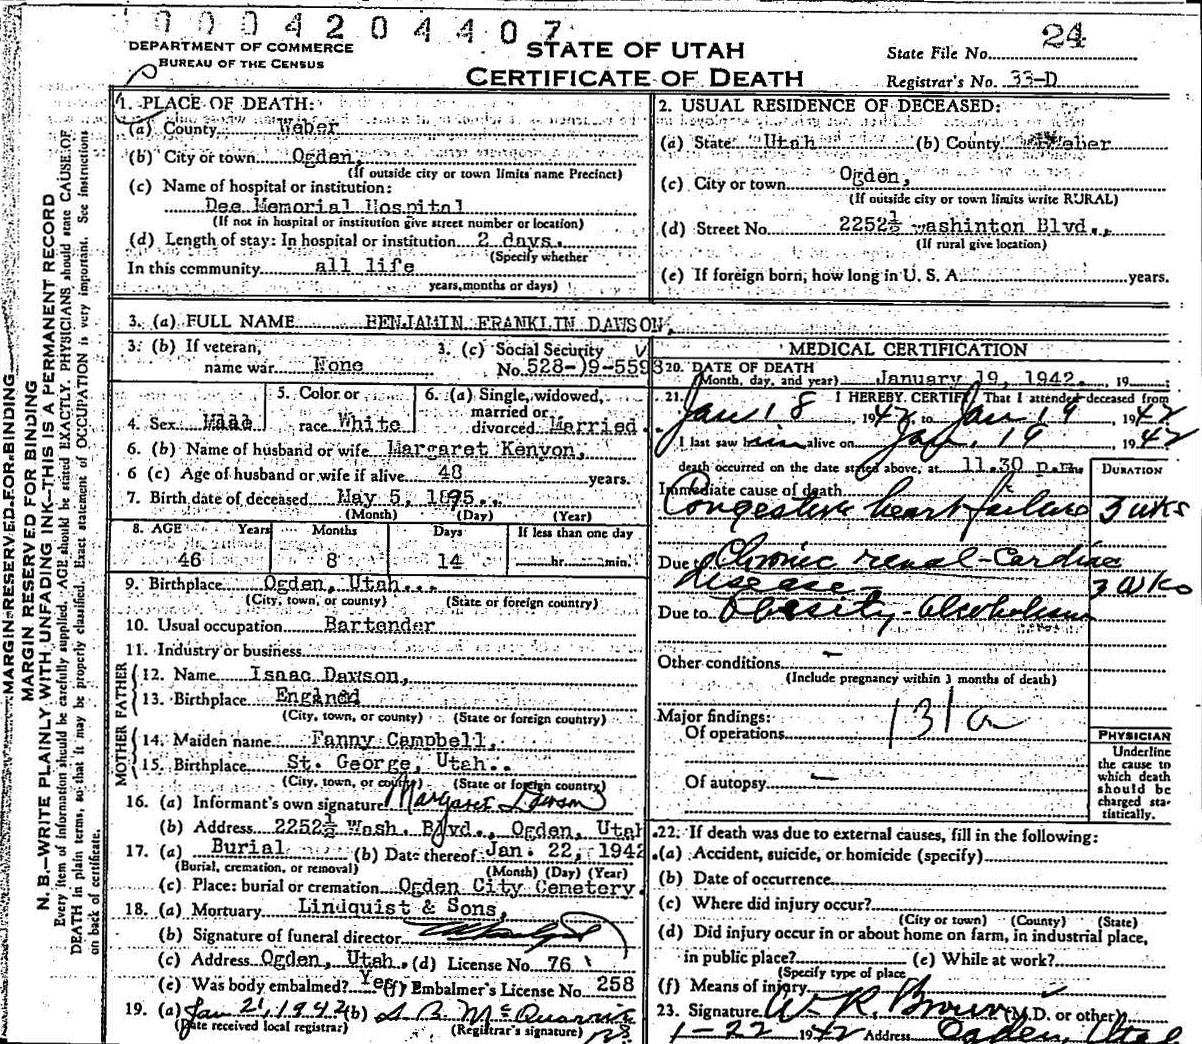 0004204407
DEPARTMENT OF COMMERCE
BUREAU OF THE CENSUS
STATE OF UTAH
CERTIFICATE OF DEATH
State File No. 24
Registrar's No. 33-D
MARGIN RESERVED FOR BINDING
MARGIN RESERVED FOR BINDING
N. B.—WRITE PLAINLY WITH UNFADING INK—THIS IS A PERMANENT RECORD
Every item of information should be carefully supplied. AGE should be stated EXACTLY. PHYSICIANS should state CAUSE OF
DEATH in plain terms, so that it may be properly classified. Exact statement of OCCUPATION is very important. See instructions
on back of certificate.
1. PLACE OF DEATH:
(a) County Weber
(b) City or town Ogden,
(If outside city or town limits name Precinct)
(c) Name of hospital or institution:
Dee Memorial Hospital
(If not in hospital or institution give street number or location)
(d) Length of stay: In hospital or institution 2 days.
(Specify whether
In this community all life
years, months or days)
2. USUAL RESIDENCE OF DECEASED:
(a) State Utah (b) County Weber
(c) City or town Ogden,
(If outside city or town limits write RURAL)
(d) Street No. 2252½ Washinton Blvd.,
(If rural give location)
(e) If foreign born, how long in U. S. A. years.
3. (a) FULL NAME BENJAMIN FRANKLIN DAWSON,
3. (b) If veteran,
name war None
3. (c) Social Security
No. 528-)9-5593
4. Sex Male
5. Color or
race White
6. (a) Single, widowed,
married or
divorced Married.
6. (b) Name of husband or wife Margaret Kenyon,
6 (c) Age of husband or wife if alive 48 years.
7. Birth date of deceased May 5, 1895.
(Month) (Day) (Year)
8. AGE Years Months Days If less than one day
46 8 14 hr. min.
9. Birthplace Ogden, Utah...
(City, town, or county) (State or foreign country)
10. Usual occupation Bartender
11. Industry or business
FATHER
12. Name Isaac Dawson,
13. Birthplace England
(City, town, or county) (State or foreign country)
MOTHER
14. Maiden name Fanny Campbell,
15. Birthplace St. George, Utah..
(City, town, or county) (State or foreign country)
16. (a) Informant's own signature Margaret Dawson
(b) Address 2252½ Wash. Blvd., Ogden, Utah
17. (a) Burial (b) Date thereof Jan. 22, 1942
(Burial, cremation, or removal) (Month) (Day) (Year)
(c) Place: burial or cremation Ogden City Cemetery.
18. (a) Mortuary Lindquist & Sons,
(b) Signature of funeral director
(c) Address Ogden, Utah. (d) License No. 76
(e) Was body embalmed? Yes (f) Embalmer's License No. 258
19. (a) Jan 21, 1942 (b)
(Date received local registrar) (Registrar's signature)
MEDICAL CERTIFICATION
20. DATE OF DEATH
(Month, day, and year) January 19, 1942. , 19
21. I HEREBY CERTIFY That I attended deceased from
Jan 18 1942 to Jan 19 1942
I last saw him alive on Jan. 19 1942
death occurred on the date stated above, at 11.30 p.m.
DURATION
Immediate cause of death
Congestive heart failure 3 wks
Due to Chronic renal-cardiac
disease 3 wks
Due to Obesity - Alcoholism
Other conditions –
(Include pregnancy within 3 months of death)
Major findings:
Of operations 131a
Of autopsy —
PHYSICIAN
Underline
the cause to
which death
should be
charged sta-
tistically.
22. If death was due to external causes, fill in the following:
(a) Accident, suicide, or homicide (specify)
(b) Date of occurrence
(c) Where did injury occur?
(City or town) (County) (State)
(d) Did injury occur in or about home on farm, in industrial place,
in public place? (e) While at work?
(Specify type of place
(f) Means of injury
23. Signature W. R. Brown (M.D. or other)
1-22 1942 Address Ogden, Utah